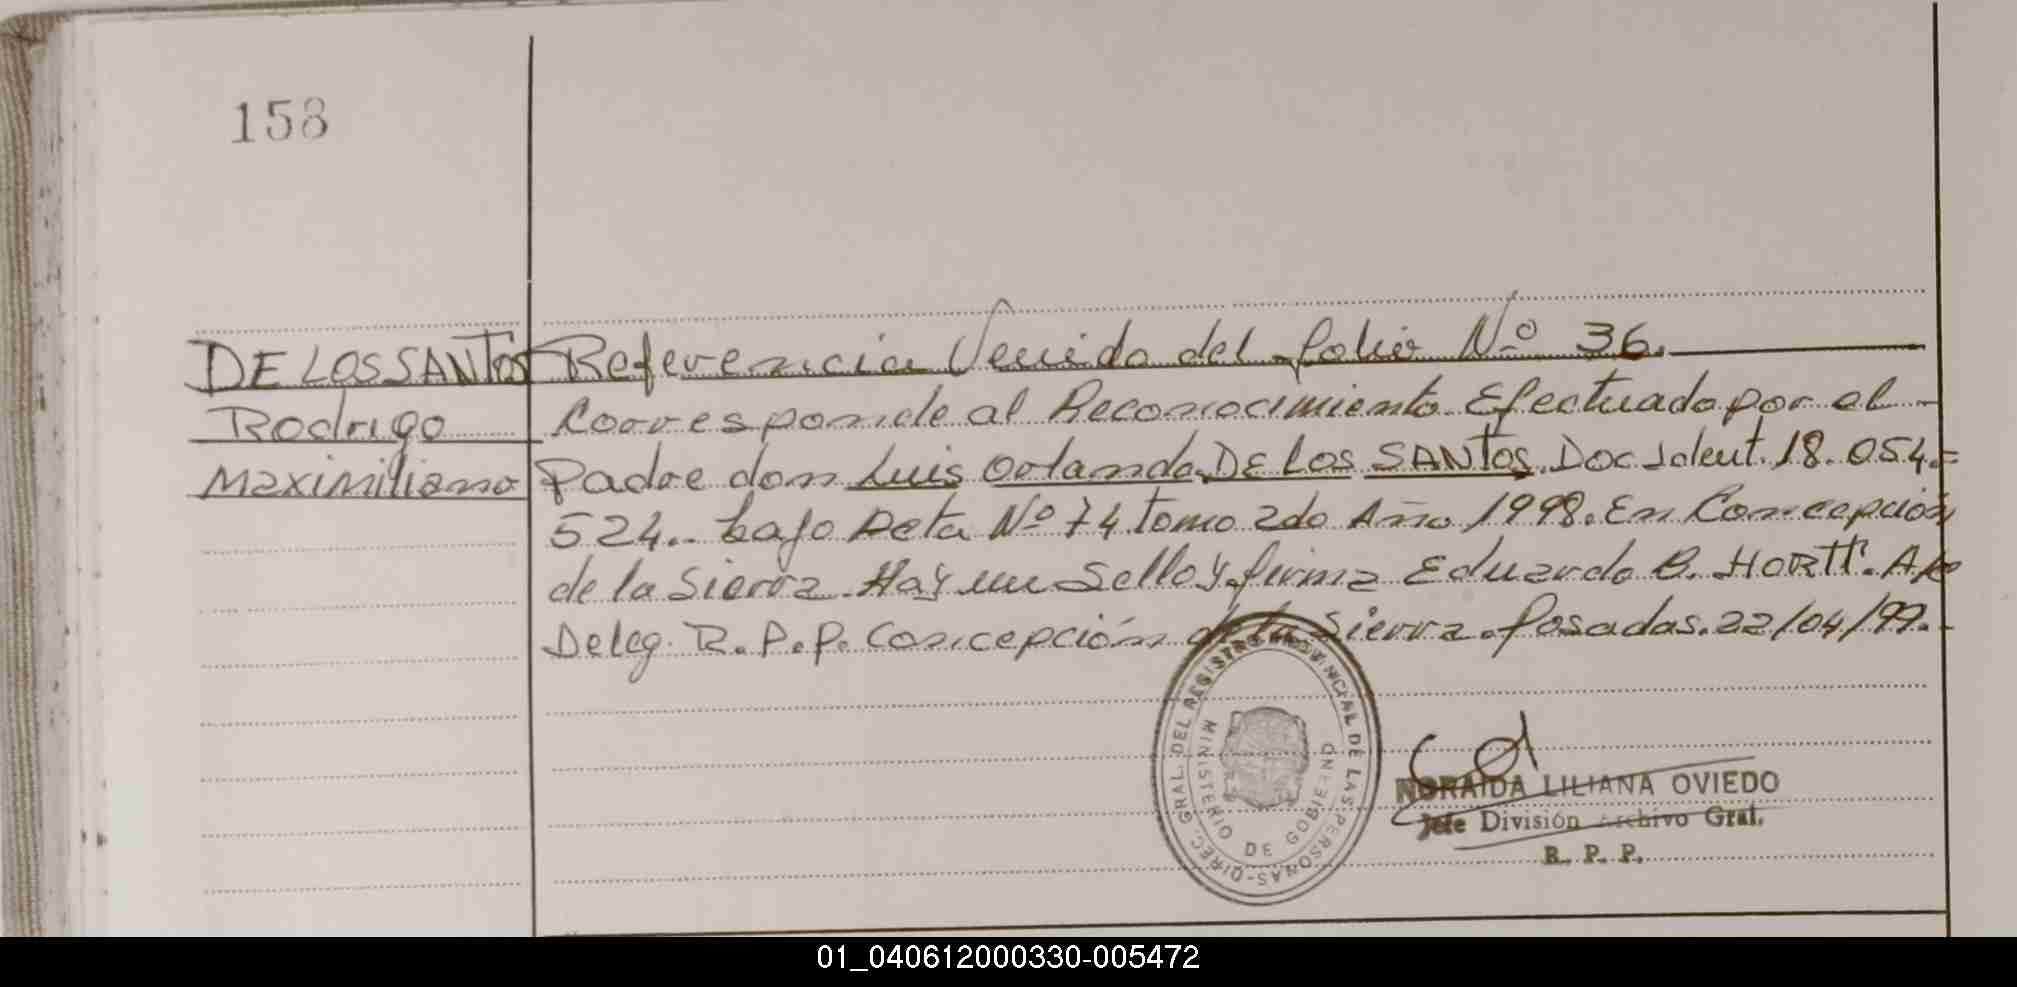 158
DE LOS SANTOS
Rodrigo
Maximiliano
Referencia Venida del folio Nº 36.
Corresponde al Reconocimiento Efectuado por el -
Padre don Luis Orlando DE LOS SANTOS. Doc Ident. 18.054.=
524.- bajo Acta Nº 74 tomo 2do Año 1998. En Concepción
de la Sierra. Hay un Sello y firma Eduardo B. HORTT.
Deleg. R.P.P. Concepción de la Sierra. Posadas. 22/04/99.-
DIREC. GRAL. DEL REGISTRO PROVINCIAL DE LAS PERSONAS-
MINISTERIO DE GOBIERNO
NORAIDA LILIANA OVIEDO
Jefe División Archivo Gral.
R. P. P.
01_040612000330-005472